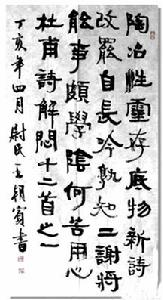 陶冶性靈存底物新詩
改罷自長吟孰知二謝將
能事頗學陰何苦用心
杜甫詩解悶十二首之一
丁亥年四月尉民王書